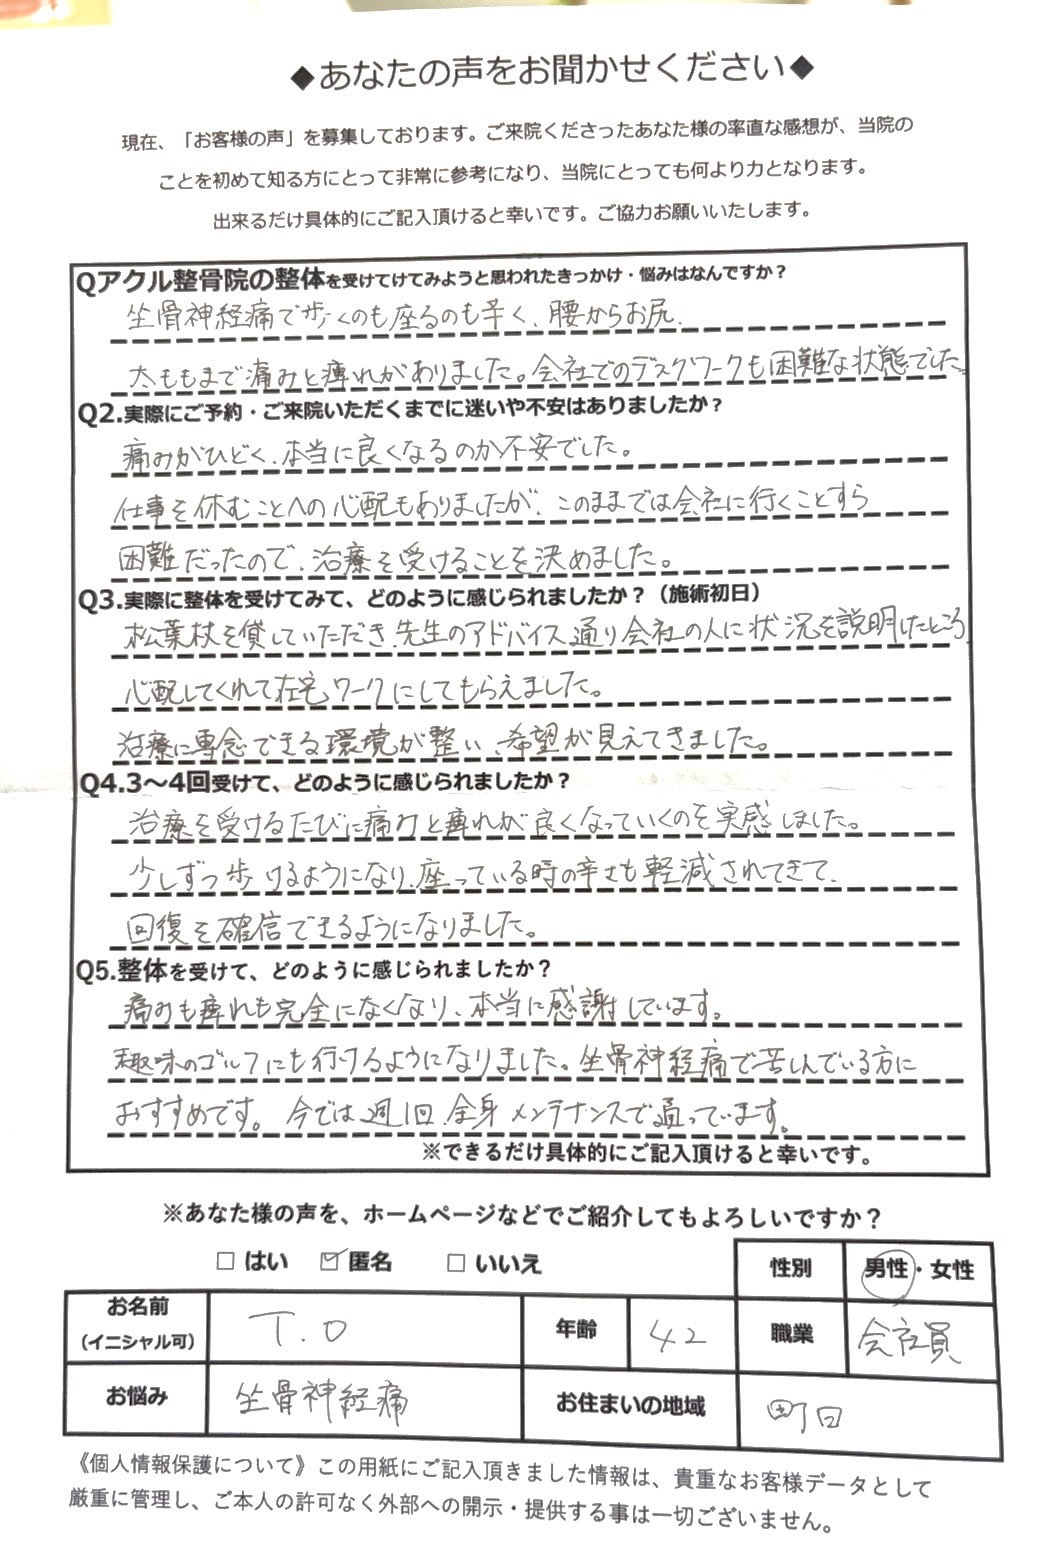 ◆あなたの声をお聞かせください◆
現在、「お客様の声」を募集しております。ご来院くださったあなた様の率直な感想が、当院の
ことを初めて知る方にとって非常に参考になり、当院にとっても何より力となります。
出来るだけ具体的にご記入頂けると幸いです。ご協力お願いいたします。
Qアクル整骨院の整体を受けてけてみようと思われたきっかけ・悩みはなんですか？
坐骨神経痛で歩くのも座るのも辛く、腰からお尻、
太ももまで痛みと痺れがありました。会社でのデスクワークも困難な状態でした。
Q2.実際にご予約・ご来院いただくまでに迷いや不安はありましたか？
痛みがひどく、本当に良くなるのか不安でした。
仕事を休むことへの心配もありましたが、このままでは会社に行くことすら
困難だったので、治療を受けることを決めました。
Q3.実際に整体を受けてみて、どのように感じられましたか？（施術初日）
松葉杖を貸していただき、先生のアドバイス通り会社の人に状況を説明したところ、
心配してくれて在宅ワークにしてもらえました。
治療に専念できる環境が整い、希望が見えてきました。
Q4.3～4回受けて、どのように感じられましたか？
治療を受けるたびに痛みと痺れが良くなっていくのを実感しました。
少しずつ歩けるようになり、座っている時の辛さも軽減されてきて、
回復を確信できるようになりました。
Q5.整体を受けて、どのように感じられましたか？
痛みも痺れも完全になくなり、本当に感謝しています。
趣味のゴルフにも行けるようになりました。坐骨神経痛で苦しんでいる方に
おすすめです。今では週1回、全身メンテナンスで通っています。
※できるだけ具体的にご記入頂けると幸いです。
※あなた様の声を、ホームページなどでご紹介してもよろしいですか？
□ はい ☑ 匿名 □ いいえ 性別 男性・女性
お名前（イニシャル可） T.O 年齢 42 職業 会社員
お悩み 坐骨神経痛 お住まいの地域 町田
《個人情報保護について》この用紙にご記入頂きました情報は、貴重なお客様データとして
厳重に管理し、ご本人の許可なく外部への開示・提供する事は一切ございません。